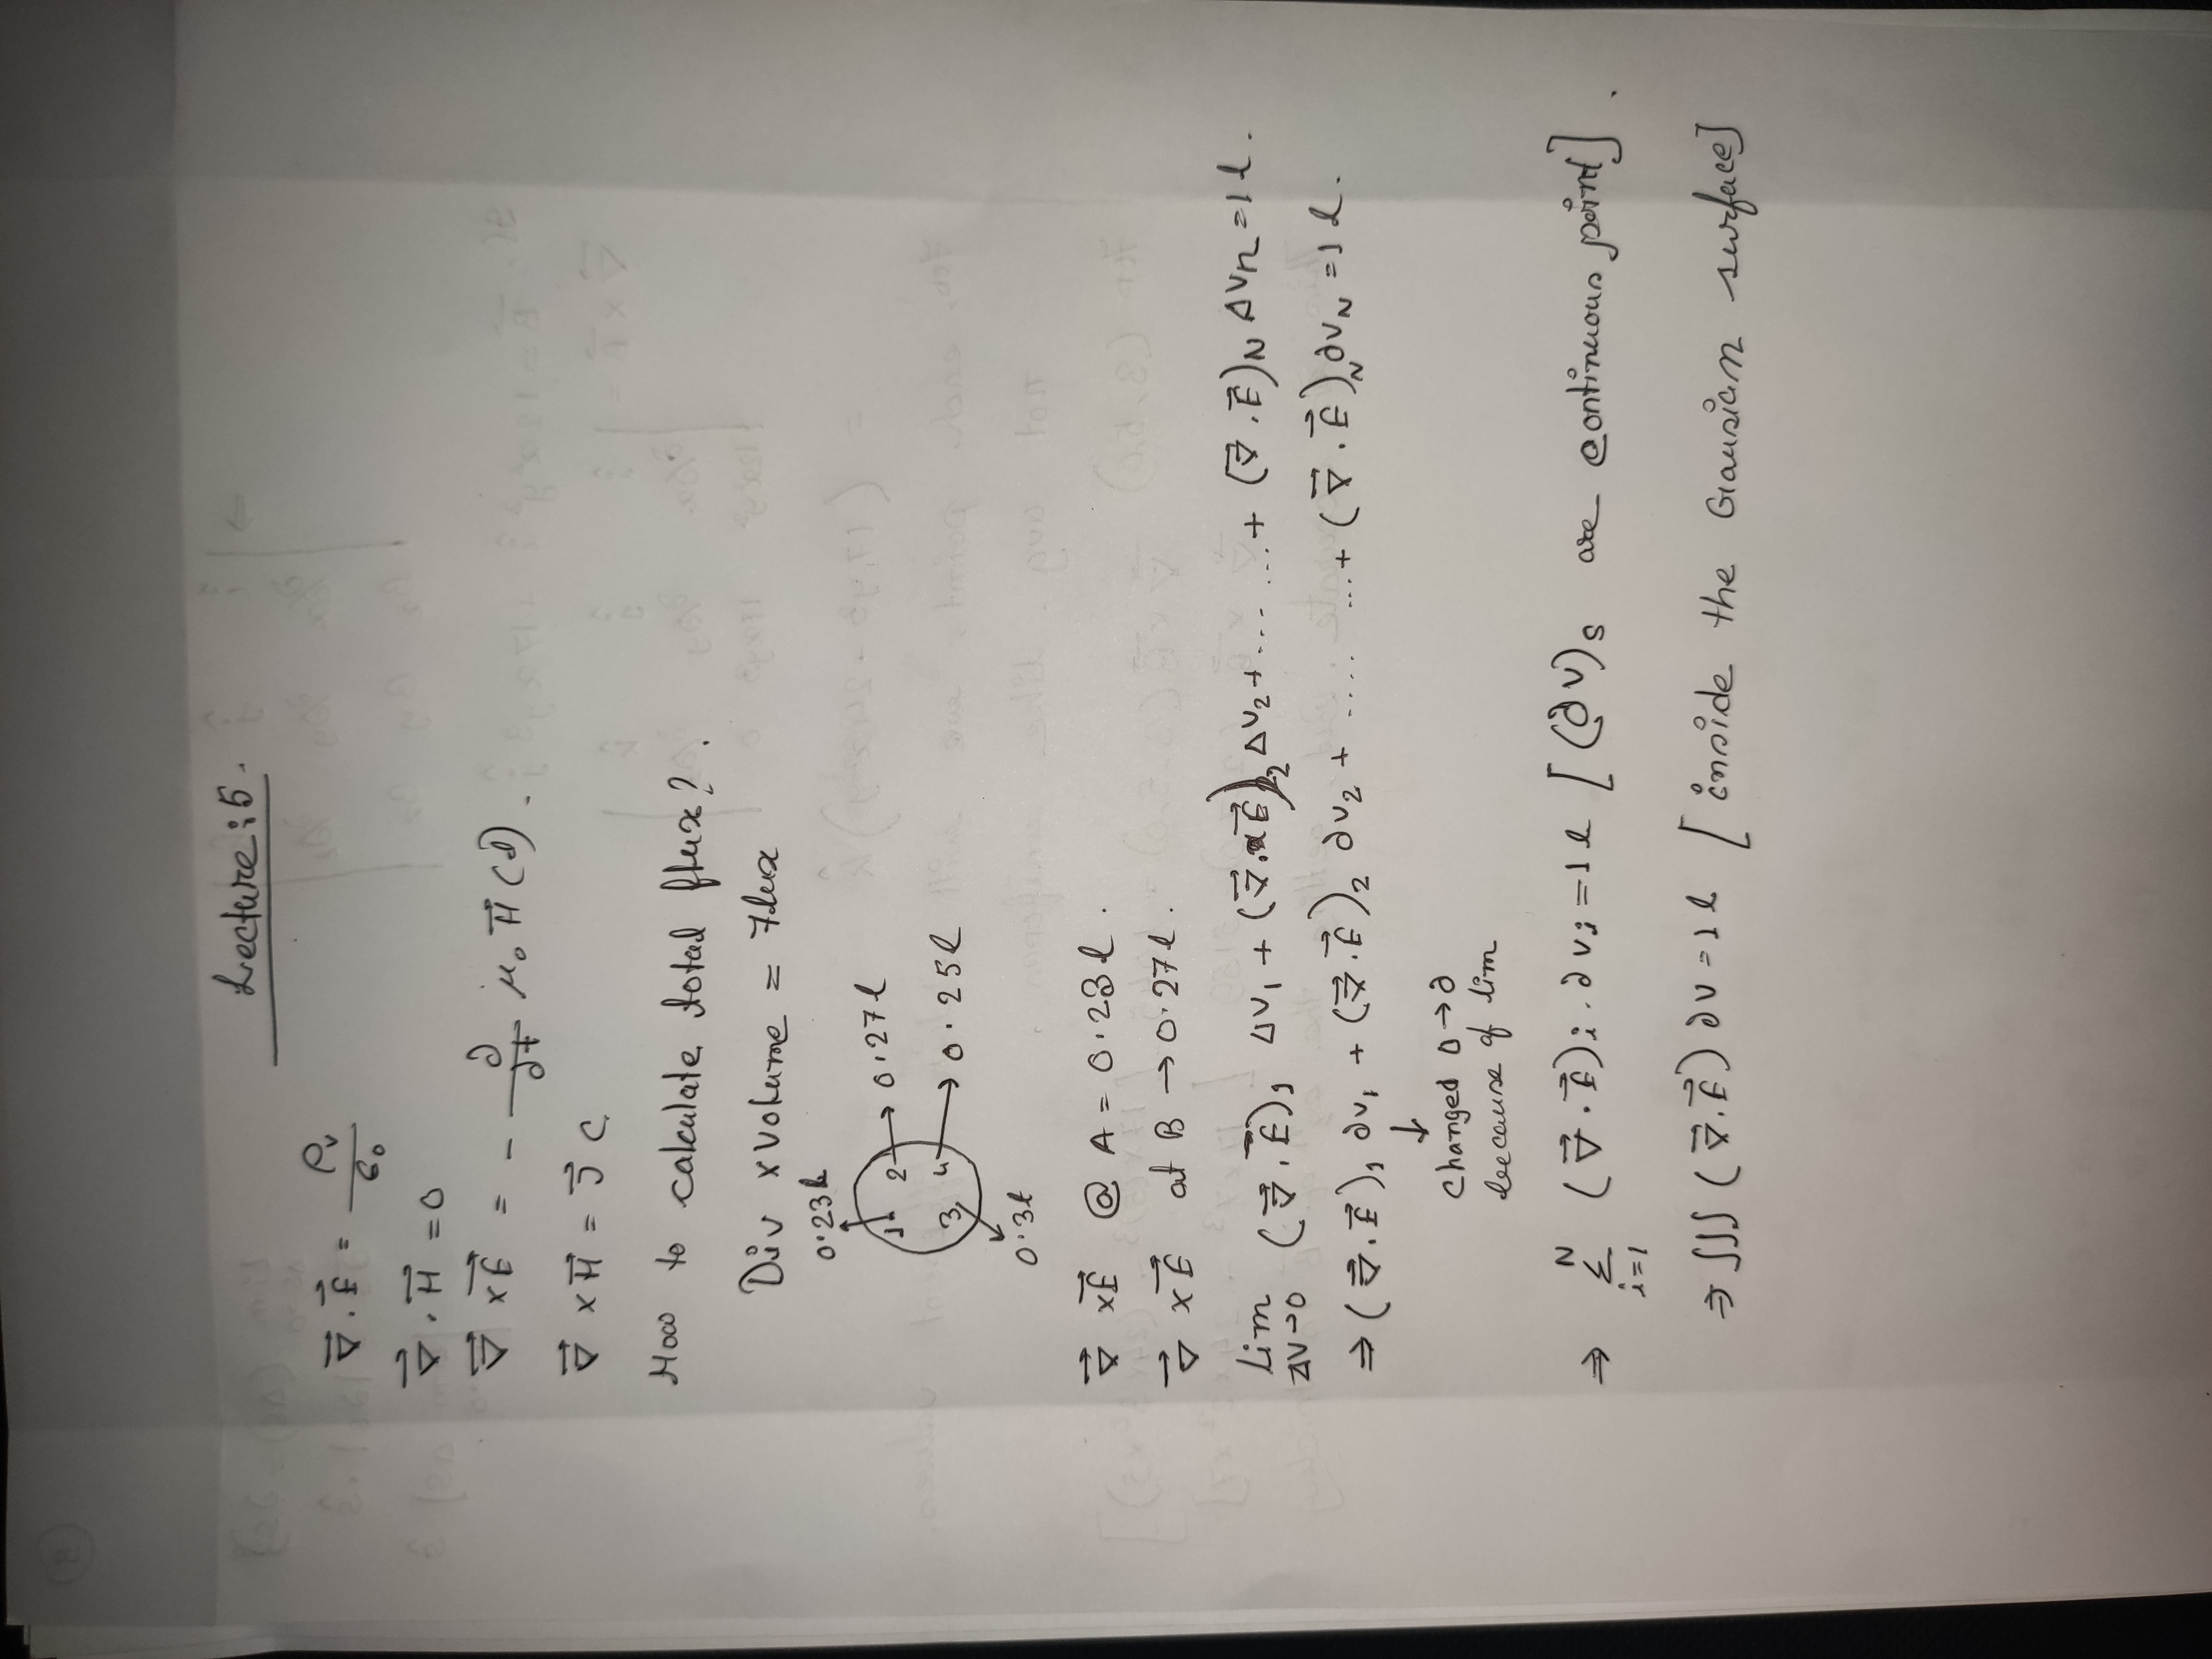 Lecture:5.
∇⃗ . E⃗ = ρv / ϵ0
∇⃗ . H⃗ = 0
∇⃗ × E⃗ = - ∂/∂t μ0 H⃗ (t).
∇⃗ × H⃗ = J⃗ c
How to calculate total flux?.
Div × Volume = Flux
0.23l
1 2 → 0.27l
3 4 → 0.25l
0.3l
∇⃗ × E⃗ @ A = 0.23l.
∇⃗ × E⃗ at B → 0.27l.
lim ΔV→0 (∇⃗ . E⃗)1 ΔV1 + (∇⃗ . E⃗)2 ΔV2 + ... ... + (∇⃗ . E⃗)N ΔVn = 1l.
⇒ (∇⃗ . E⃗)1 ∂v1 + (∇⃗ . E⃗)2 ∂v2 + .... ...+ (∇⃗ . E⃗)N ∂vN = 1l.
↓
Changed Δ → ∂
because of lim
⇒ N Σ i=1 (∇⃗ . E⃗)i . ∂vi = 1l [(∂v)s are continuous point].
⇒ ∫∫∫ (∇⃗ . E⃗) ∂v = 1l [inside the Gausian surface]